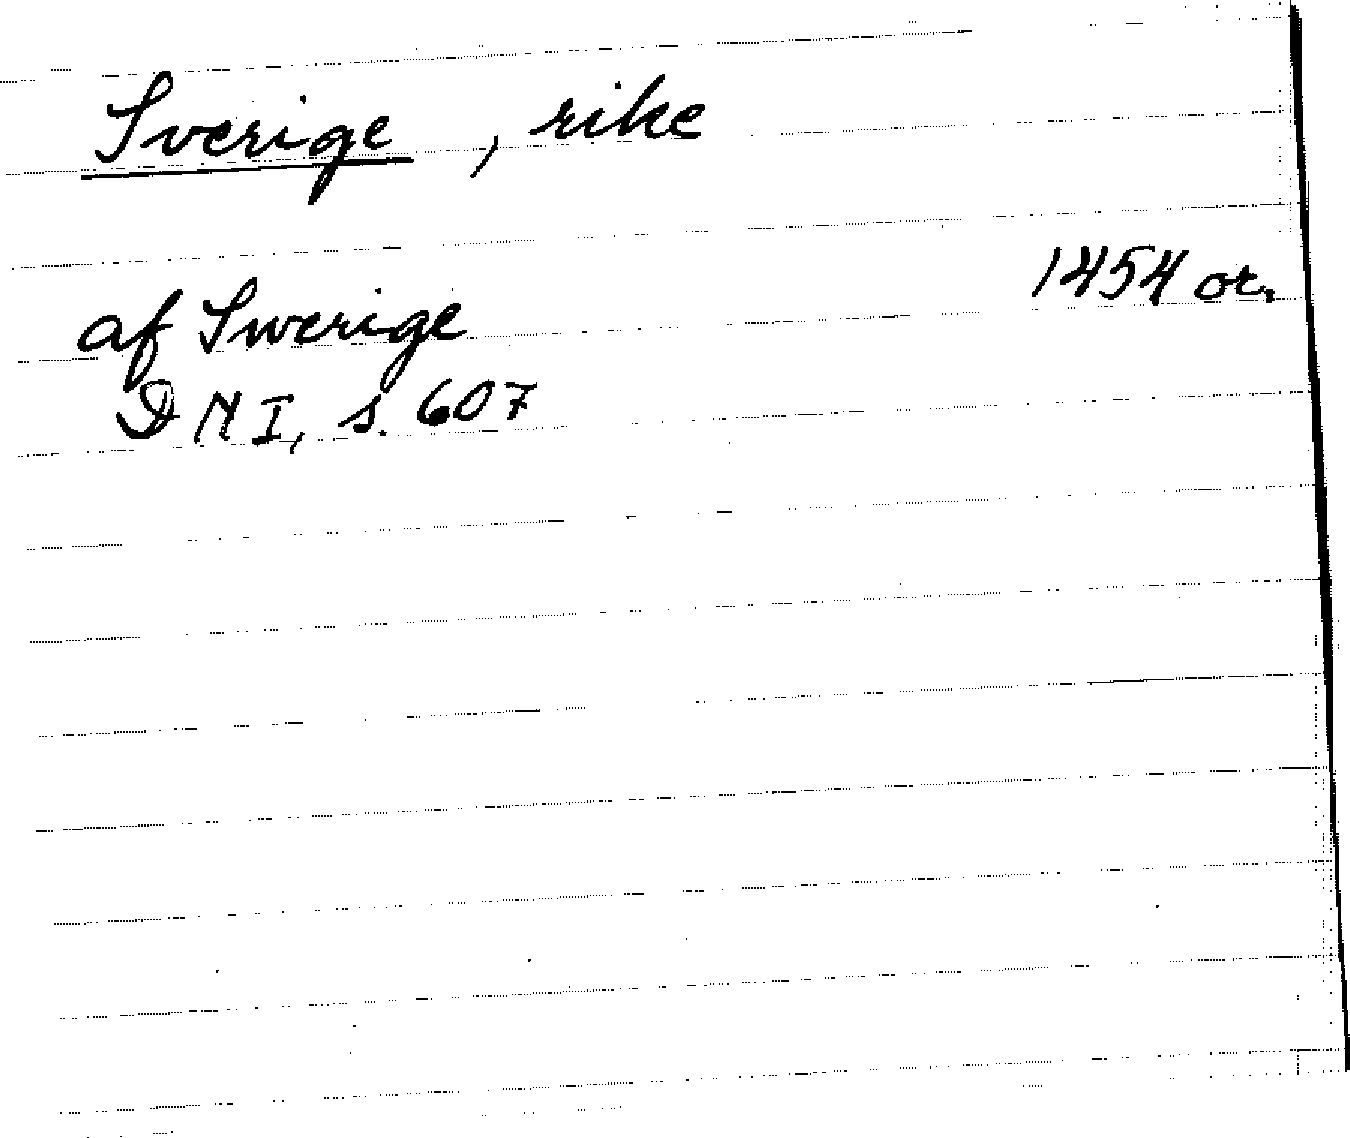 Sverige, rike
1454 or.
af Swerige
DN I, s. 607